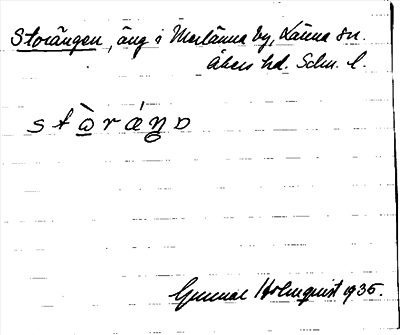 Storängen, äng i Merlänna by, Länna sn.
Åkers hd. Södm. l.
s t ὼ̲ r ǽ ŋ ɒ
Gunnar Holmquist 1935.